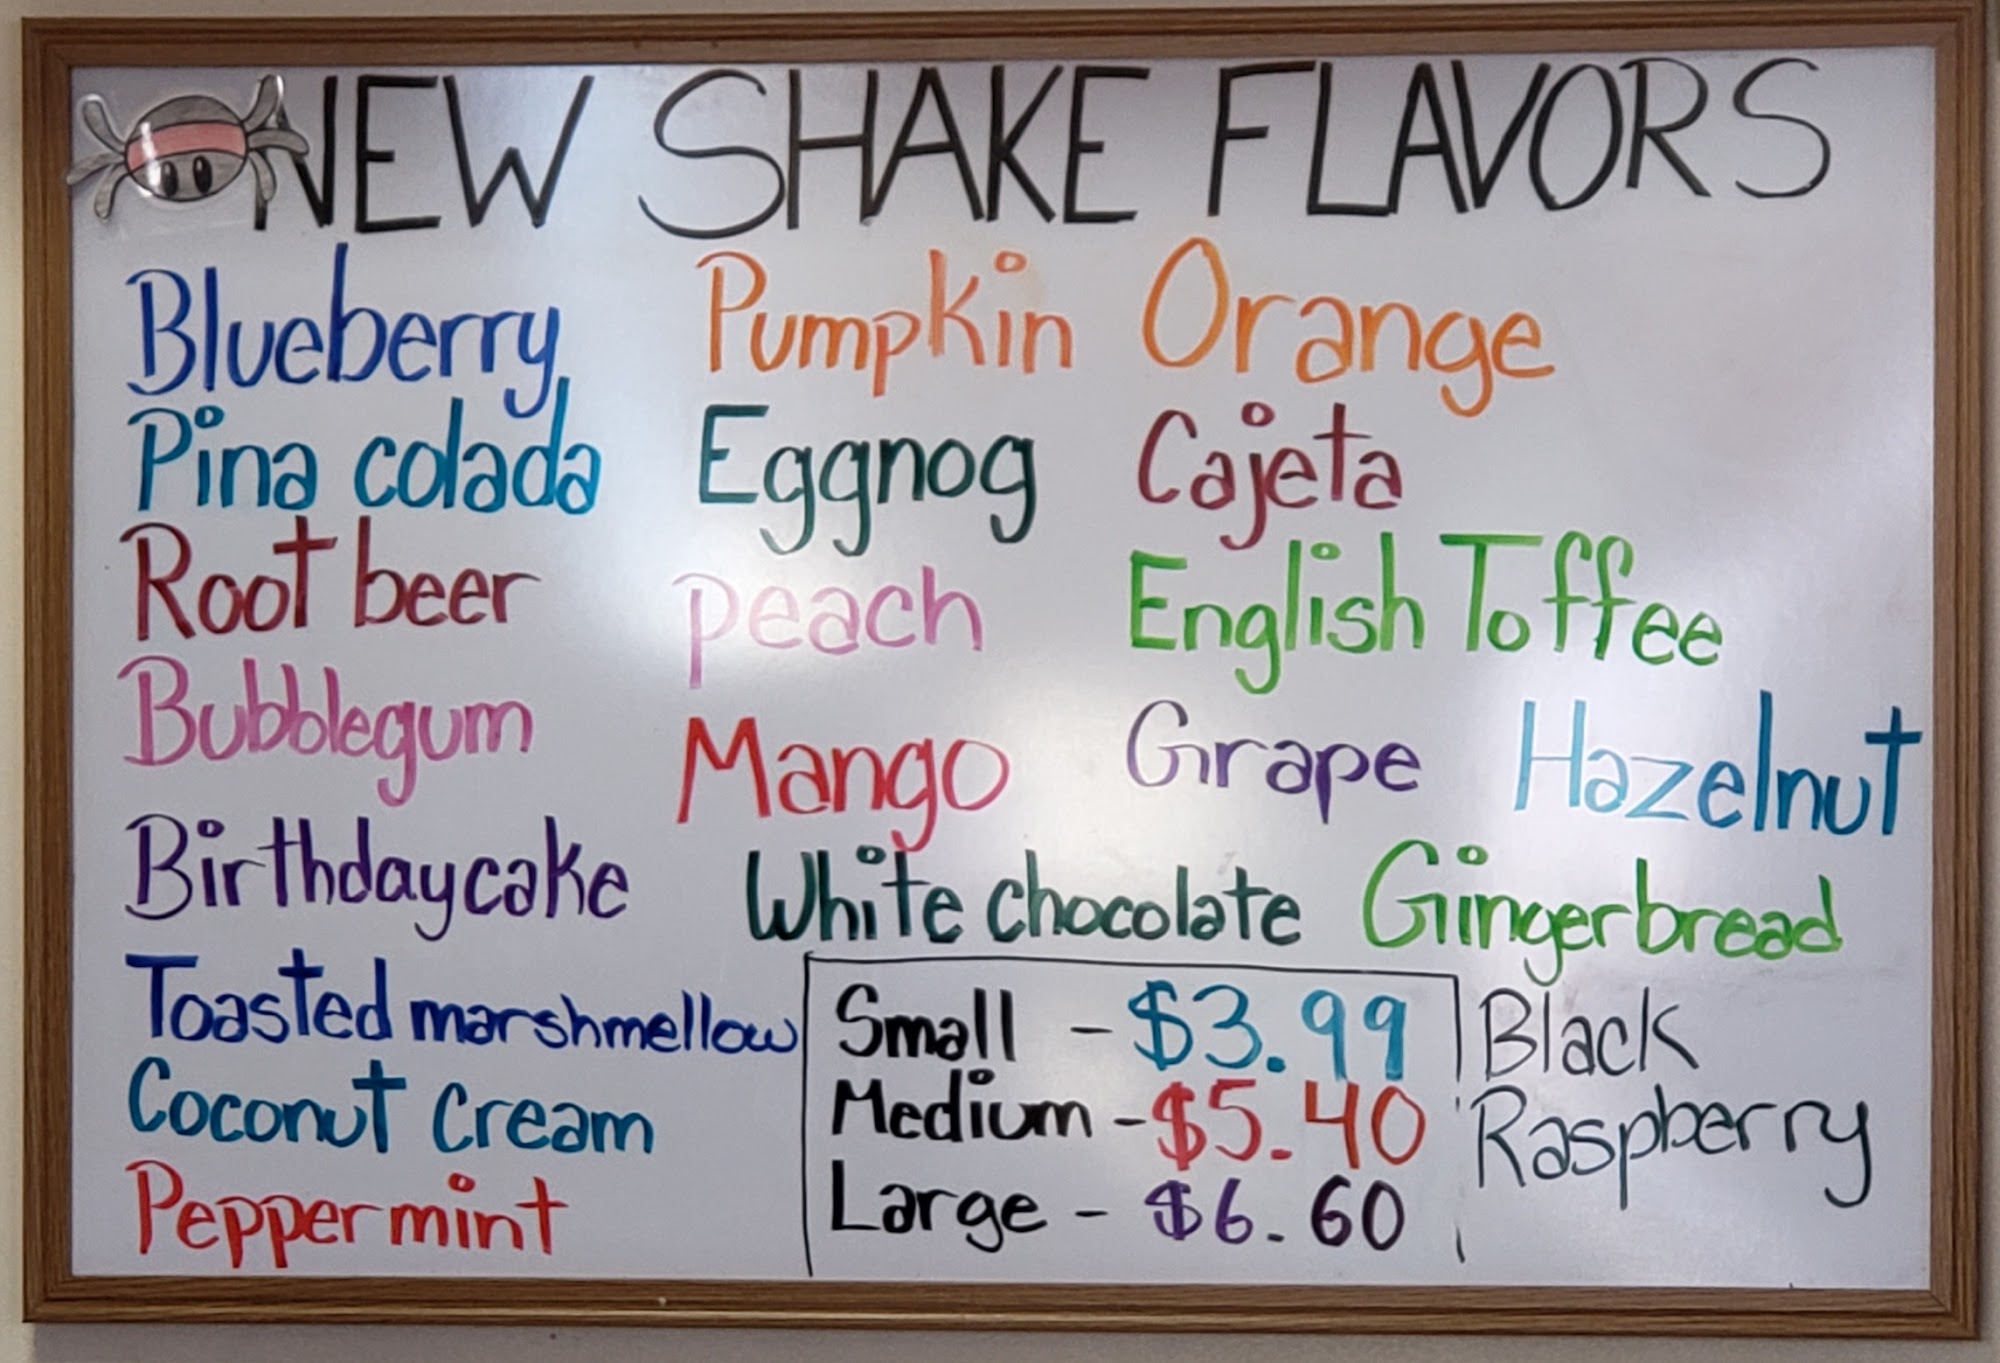 NEW SHAKE FLAVORS
Blueberry Pumpkin Orange
Pina colada Eggnog Cajeta
Root beer peach English Toffee
Bubblegum Mango Grape Hazelnut
Birthdaycake White chocolate Gingerbread
Toasted marshmellow
Coconut Cream
Peppermint
Small - $3.99
Medium - $5.40
Large - $6.60
Black
Raspberry